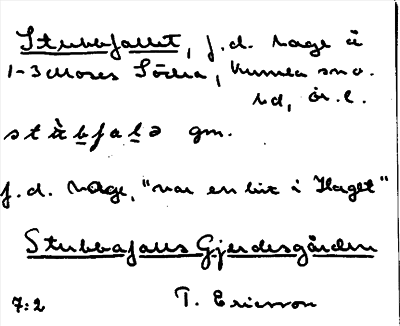 Stubbfallet, f.d. hage å
1-3 Mosås Södra, Kumla sn o.
hd, Ör. l.
stùbfalə gm.
f.d. hage, "var en bit i Haget"
Stubbafalls Gjerdesgården
7:2 T. Ericsson